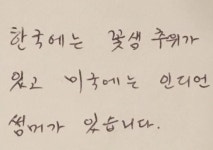 한국에는 꽃샘 추위가
있고 미국에는 인디언
썸머가 있습니다.